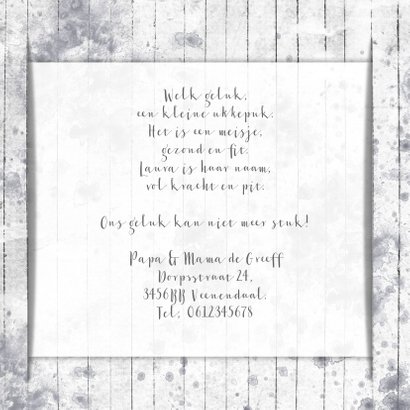 Welk geluk,
een kleine ukkepuk.
Het is een meisje,
gezond en fit.
Laura is haar naam,
vol kracht en pit.
Ons geluk kan niet meer stuk!
Papa & Mama de Greeff
Dorpsstraat 24,
3456BB Veenendaal.
Tel; 0612345678